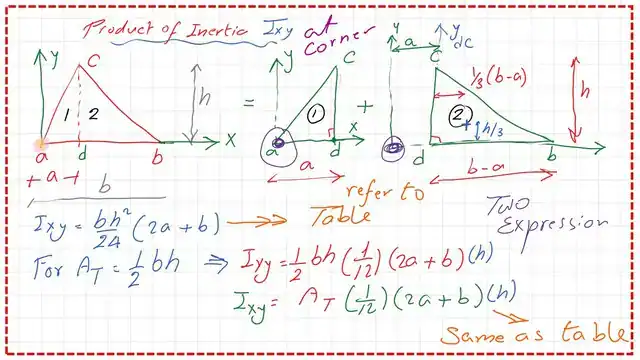 Product of Inertia Ixy at corner
y
C
1
2
h
a
d
b
x
a
b
=
y
C
1
a
d
x
a
+
y
a
y dc
C
1/3(b-a)
2
+ h/3
h
d
b
b-a
Ixy = bh²/24 (2a+b) →→ refer to Table
Two Expression
For A_T = 1/2 bh ⇒ Ixy = 1/2 bh (1/12) (2a+b) (h)
Ixy = A_T (1/12) (2a+b) (h)
Same as table